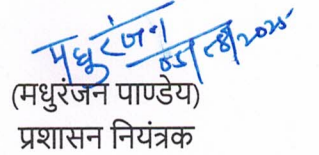 मधुरंजन
05/08/2025
(मधुरंजन पाण्डेय)
प्रशासन नियंत्रक